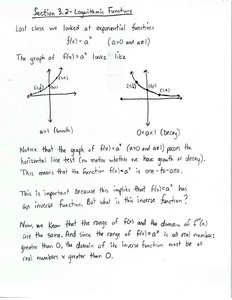 Section 3.2 - Logarithmic Functions
Last class we looked at exponential functions
f(x) = a^x (a>0 and a≠1)
The graph of f(x) = a^x looks like
a>1 (Growth) 0<a<1 (Decay)
Notice that the graph of f(x)=a^x (a>0 and a≠1) passes the
horizontal line test (no matter whether we have growth or decay).
This means that the function f(x)=a^x is one-to-one.
This is important because this implies that f(x)=a^x has
an inverse function. But what is this inverse function?
Now, we know that the range of f(x) and the domain of f^-1(x)
are the same. And since the range of f(x)=a^x is all real numbers
greater than 0, the domain of its inverse function must be all
real numbers x greater than 0.